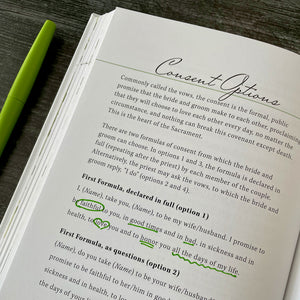 Consent Options
Commonly called the vows, the consent is the formal, public
promise that the bride and groom make to each other
that they will choose to love each other every day, no matter the
circumstance, and nothing can break this covenant except death.
This is the heart of the Sacrament.
There are two formulas of consent from which the bride and
groom can choose. In options 1 and 3, the formula is declared in
full (repeating after the priest) by each member of the couple.
Alternatively, the priest may ask the vows, to which the bride and
groom reply, "I do" (options 2 and 4).
First Formula, declared in full (option 1)
I, (Name), take you, (Name), to be my wife/husband. I promise to
be faithful to you, in good times and in bad, in sickness and in
health, to love you and to honor you all the days of my life.
First Formula, as questions (option 2)
(Name), do you take (Name) to be your wife/husband?
promise to be faithful to her/him in good
in sickness and in health, to
the days of your